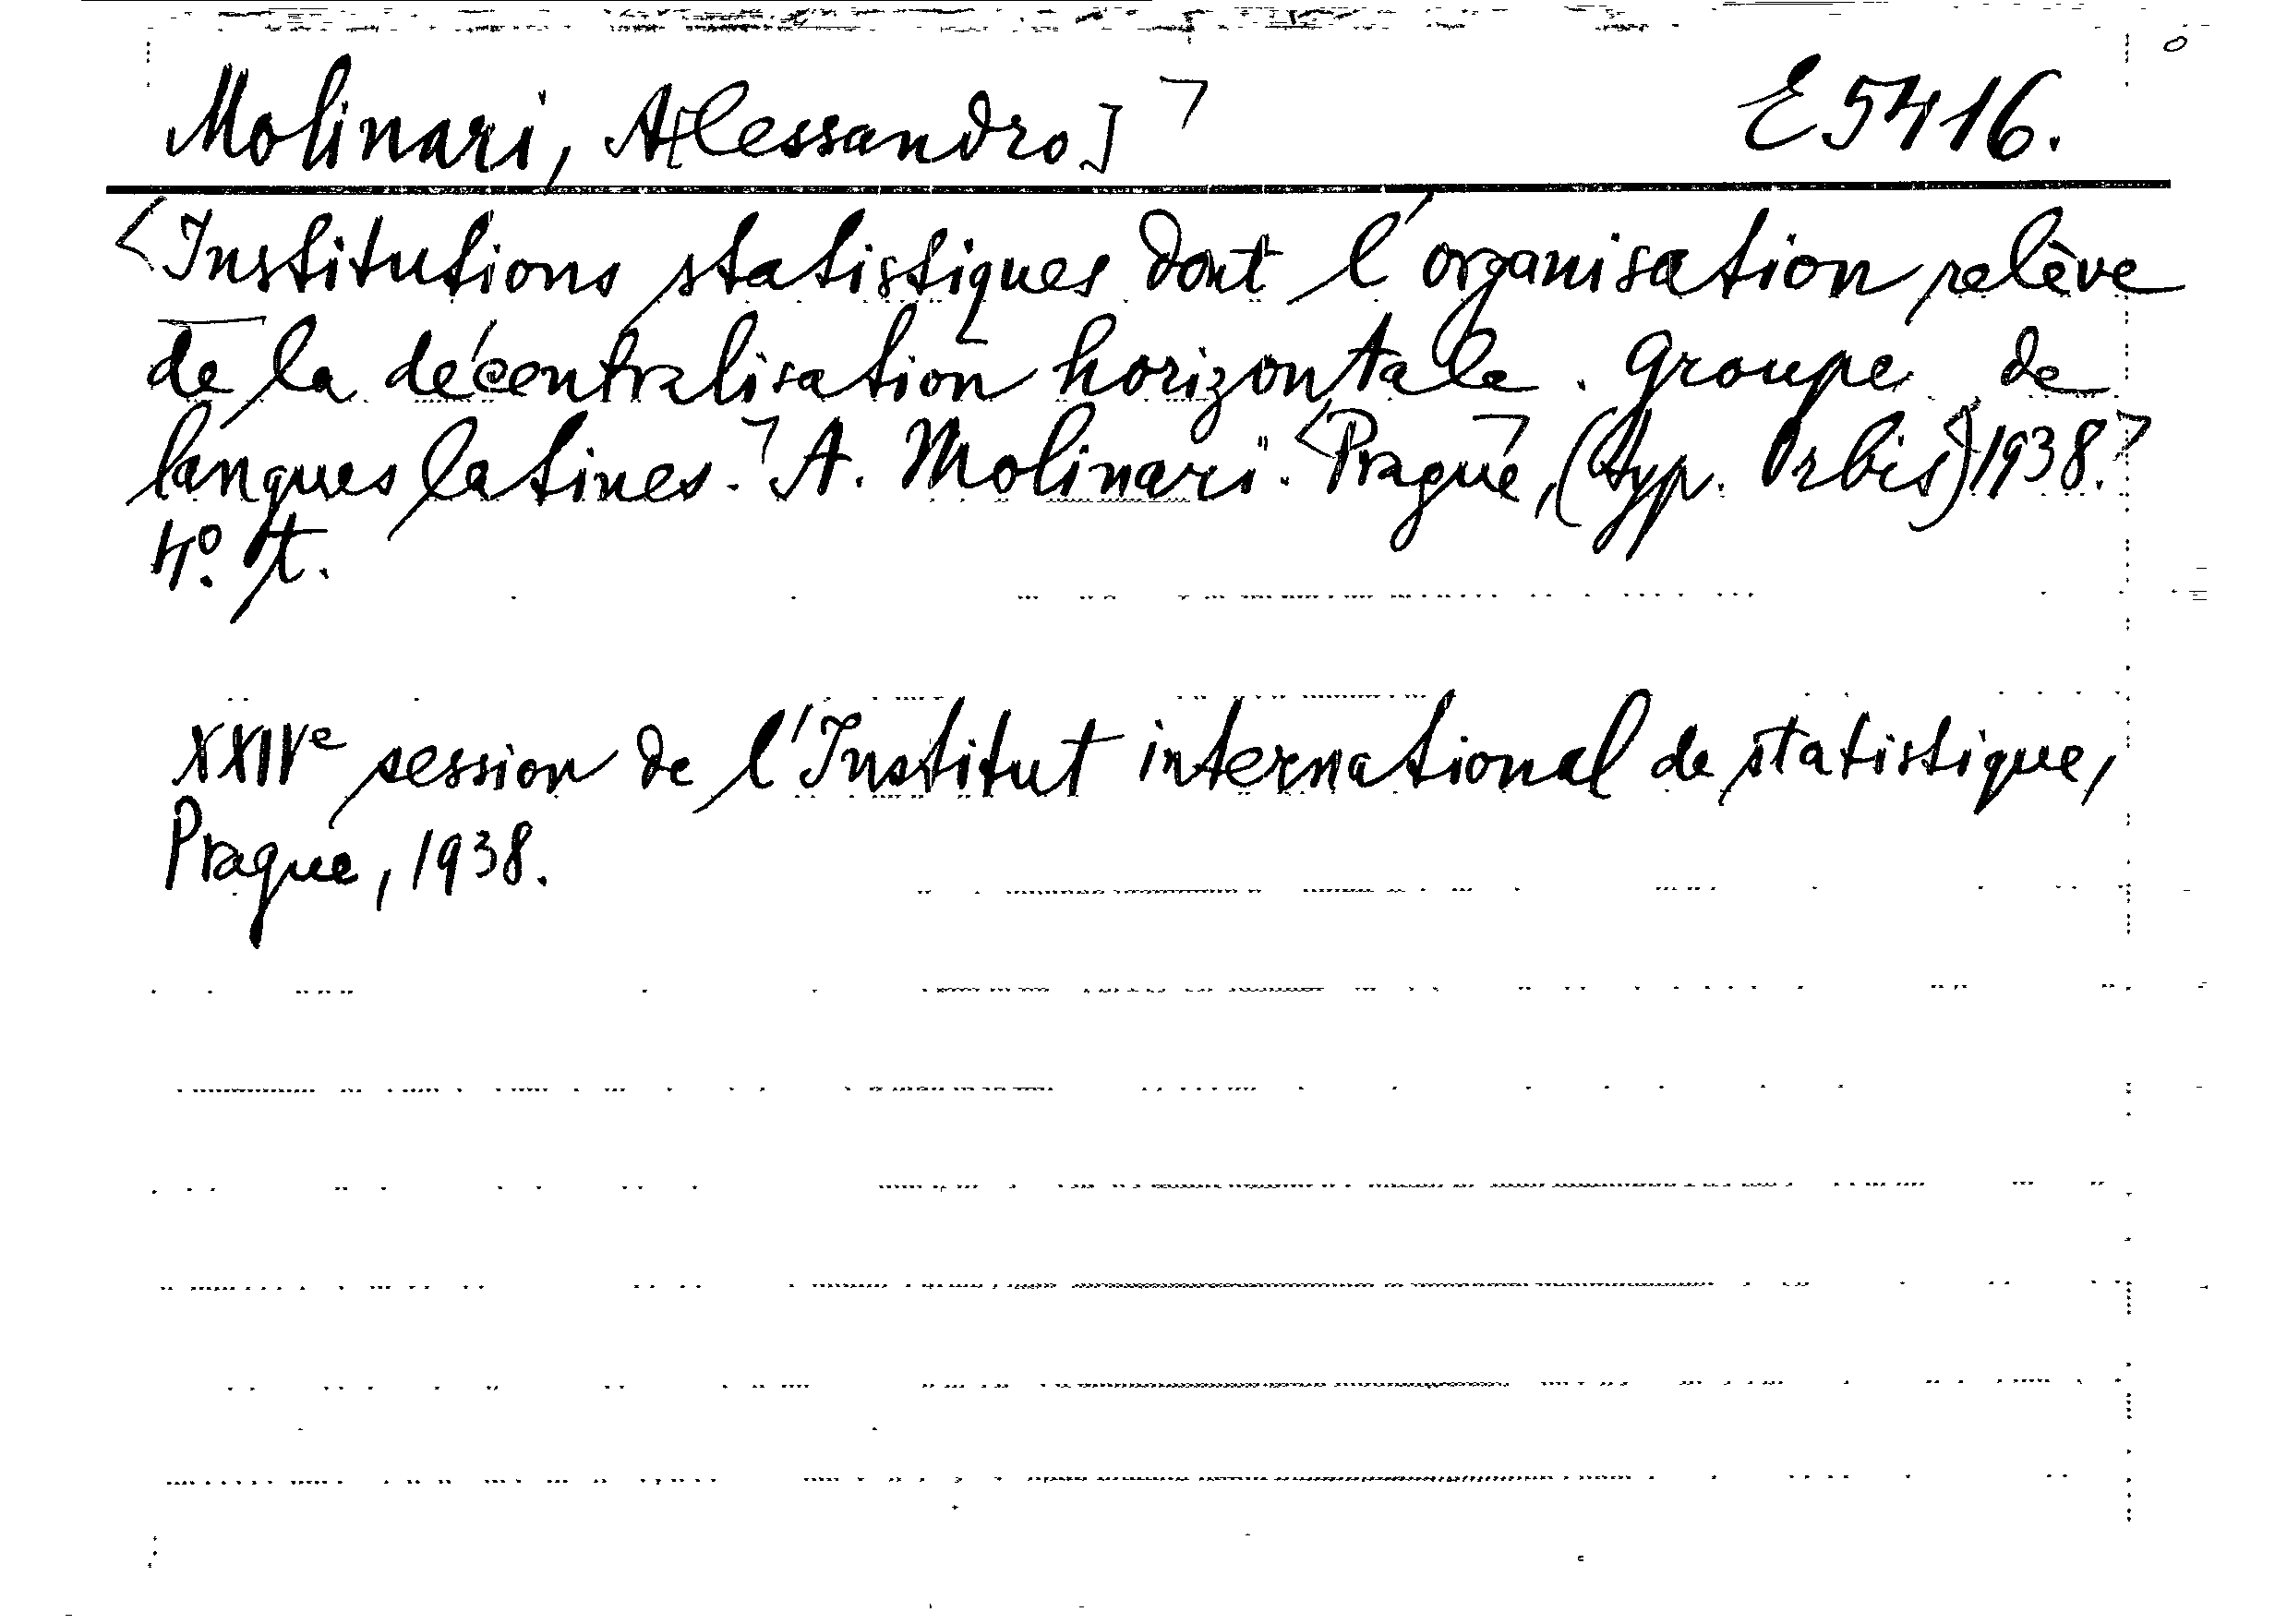 Molinari, A[lessandro] E 5416.
Institutions statistiques dont l'organisation relève
de la décentralisation horizontale. Groupe de
langues latines. A. Molinari. Prague, (typ. Orbis) 1938.
4°. t.
XXIVe session de l'Institut international de statistique,
Prague, 1938.